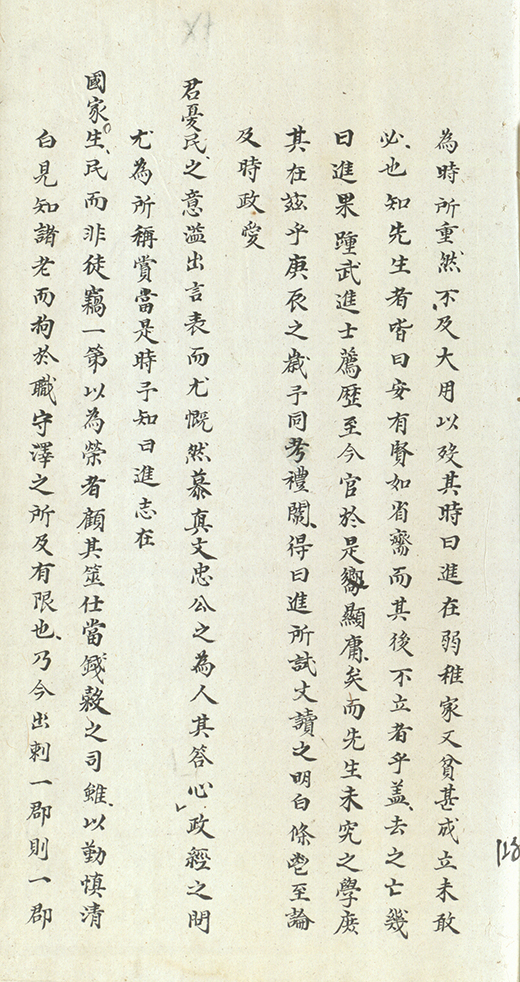 為時所重然不及大用以歿其時曰進在弱稚家又貧甚成立未敢
必也知先生者皆曰安有賢如省齋而其後不立者乎盖去之亡幾
曰進果踵武進士薦歷至今官於是嚮顯庸矣而先生未究之學庶
其在茲乎庚辰之歲予同考禮闈得曰進所試文讀之明白條鬯至論
及時政愛
君憂民之意溢出言表而尤慨然慕真文忠公之為人其答心政經之問
尤為所稱賞當是時予知曰進志在
國家生民而非徒竊一第以為榮者顧其筮仕當錢穀之司雖以勤慎清
白見知諸老而拘於職守澤之所及有限也乃今出刺一郡則一郡